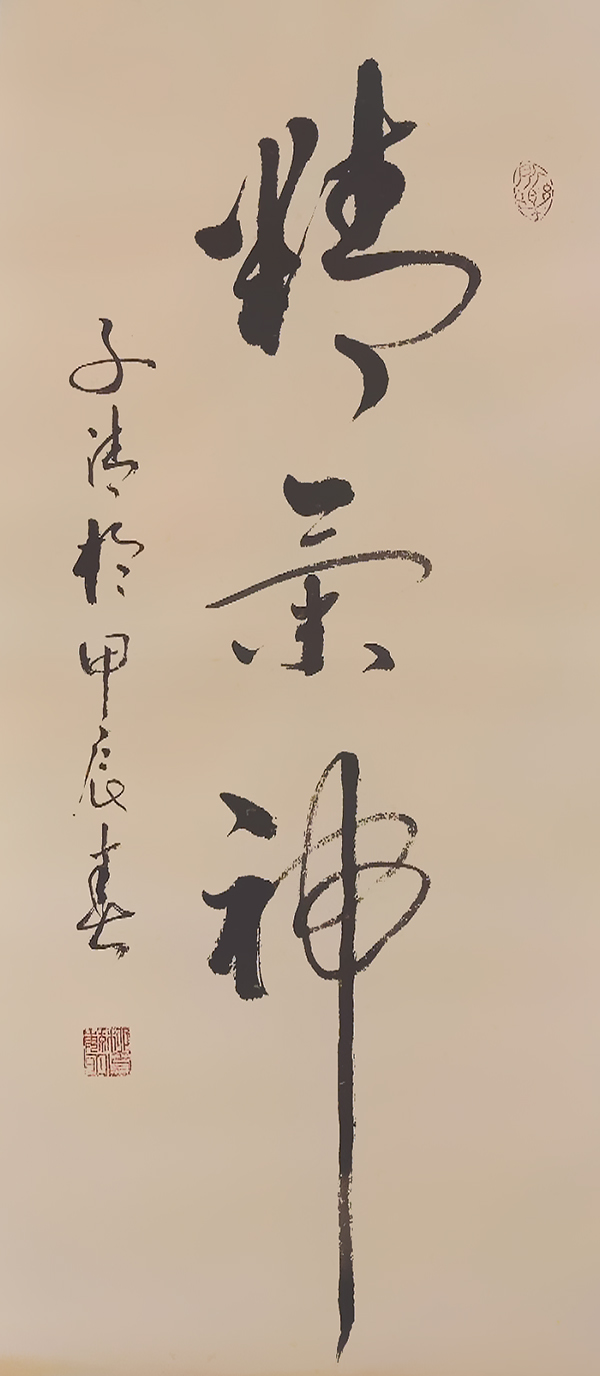 精氣神
子清於甲辰春